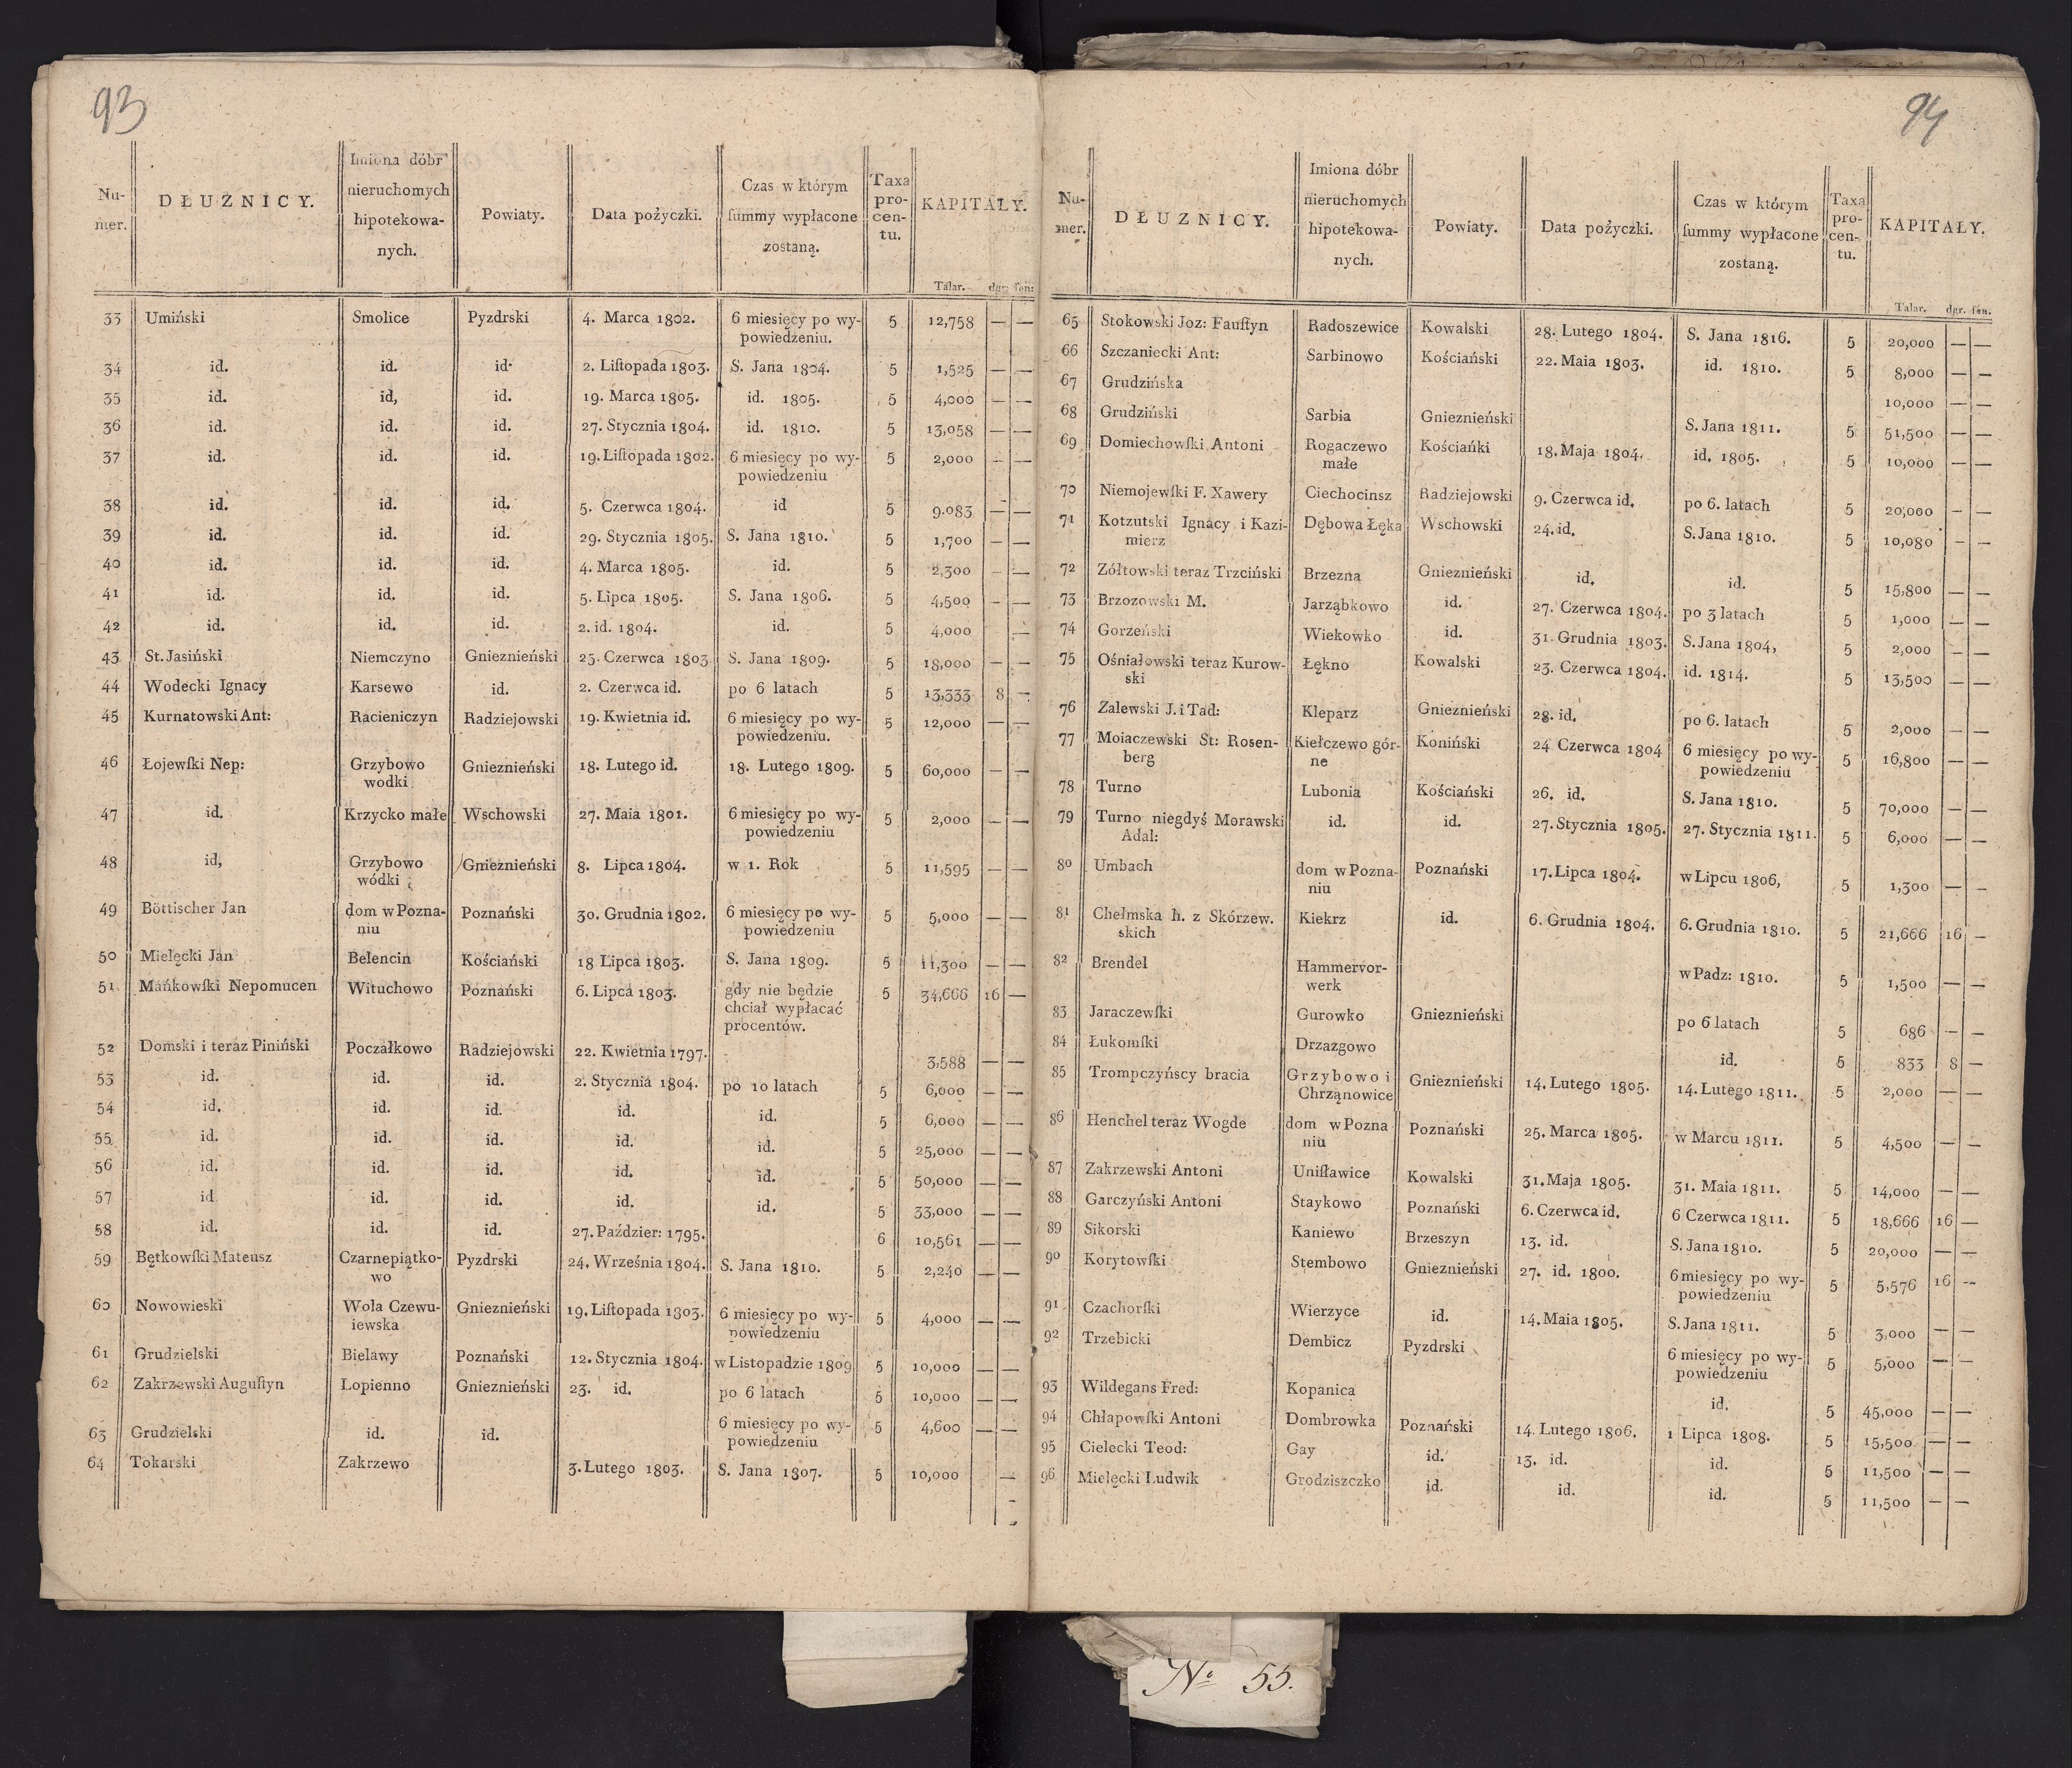 93
Nu-
mer.
DŁUŻNICY.
Imiona dóbr
nieruchomych
hipotekowa-
nych.
Powiaty.
Data pożyczki.
Czas w którym
ſummy wypłacone
zostaną.
Taxa
pro-
cen-
tu.
KAPITAŁY.
Talar. dgr: fen:
33 Umiński Smolice Pyzdrski 4. Marca 1802. 6 miesięcy po wy- 5 12,758 — —
powiedzeniu.
34 id. id. id. 2. Liſtopada 1803. S. Jana 1804. 5 1,525 — —
35 id. id, id. 19. Marca 1805. id. 1805. 5 4,000 — —
36 id. id. id. 27. Stycznia 1804. id. 1810. 5 13,058 — —
37 id. id. id. 19. Liſtopada 1802. 6 miesięcy po wy- 5 2,000 — —
powiedzeniu
38 id. id. id. 5. Czerwca 1804. id 5 9.083 — —
39 id. id. id. 29. Stycznia 1805. S. Jana 1810. 5 1,700 — —
40 id. id. id. 4. Marca 1805. id. 5 2,300 — —
41 id. id. id. 5. Lipca 1805. S. Jana 1806. 5 4,500 — —
42 id. id. id. 2. id. 1804. id. 5 4,000 —
43 St. Jasiński Niemczyno Gnieznieński 25. Czerwca 1803 S. Jana 1809. 5 18,000 — —
44 Wodecki Ignacy Karsewo id. 2. Czerwca id. po 6 latach 5 13,333 8 —
45 Kurnatowski Ant: Racieniczyn Radziejowski 19. Kwietnia id. 6 miesięcy po wy- 5 12,000 — —
powiedzeniu.
46 Łojewſki Nep: Grzybowo Gnieznieński 18. Lutego id. 18. Lutego 1809. 5 60,000 — —
wodki
47 id. Krzycko małe Wschowski 27. Maia 1801. 6 miesięcy po wy- 5 2,000 — —
powiedzeniu
48 id, Grzybowo Gnieznieński 8. Lipca 1804. w 1. Rok 5 11,595 — —
wódki
49 Böttischer Jan dom w Pozna- Poznański 30. Grudnia 1802. 6 miesięcy po wy- 5 5,000 — —
niu powiedzeniu
50 Mielęcki Jan Belencin Kościański 18 Lipca 1803. S. Jana 1809. 5 11,300 — —
51 Mańkowſki Nepomucen Wituchowo Poznański 6. Lipca 1803. gdy nie będzie 5 34,666 16 —
chciał wypłacać
procentów.
52 Domski i teraz Piniński Poczałkowo Radziejowski 22. Kwietnia 1797. 3,588 — —
53 id. id. id. 2. Stycznia 1804. po 10 latach 5 6,000 — —
54 id. id. id. id. id. 5 6,000 — —
55 id. id. id. id. id. 5 25,000 — —
56 id. id. id. id. id. 5 50,000 — —
57 id id. id. id. id. 5 33,000 — —
58 id. id. id. 27. Paździer: 1795. 6 10,561 — —
59 Bętkowſki Mateusz Czarnepiątko- Pyzdrski 24. Września 1804. S. Jana 1810. 5 2,240 — —
wo
60 Nowowieski Wola Czewu- Gnieznieński 19. Liſtopada 1803. 6 miesięcy po wy- 5 4,000 — —
iewska powiedzeniu
61 Grudzielski Bielawy Poznański 12. Stycznia 1804. w Listopadzie 1809 5 10,000 — —
62 Zakrzewski Auguſtyn Lopienno Gnieznieński 23. id. po 6 latach 5 10,000 — —
63 Grudzielski id. id. 6 miesięcy po wy- 5 4,600 — —
powiedzeniu
64 Tokarski Zakrzewo 3. Lutego 1803. S. Jana 1807. 5 10,000 —
94
Nu-
mer.
DŁUŻNICY.
Imiona dóbr
nieruchomych
hipotekowa-
nych.
Powiaty.
Data pożyczki.
Czas w którym
ſummy wypłacone
zostaną.
Taxa
pro-
cen-
tu.
KAPITAŁY.
Talar. dgr. fen.
65 Stokowski Joz: Fauſtyn Radoszewice Kowalski 28. Lutego 1804. S. Jana 1816. 5 20,000 — —
66 Szczaniecki Ant: Sarbinowo Kościański 22. Maia 1803. id. 1810. 5 8,000 — —
67 Grudzińska 10,000 — —
68 Grudziński Sarbia Gnieznieński S. Jana 1811. 5 51,500 — —
69 Domiechowſki Antoni Rogaczewo Kościańki 18. Maja 1804. id. 1805. 5 10,000 — —
małe
70 Niemojewſki F. Xawery Ciechocinsz Radziejowski 9. Czerwca id. po 6. latach 5 20,000 — —
71 Kotzutski Ignacy i Kazi- Dębowa Łęka Wschowski 24. id. S. Jana 1810. 5 10,080 — —
mierz
72 Zółtowski teraz Trzciński Brzezna Gnieznieński id. id. 5 15,800 — —
73 Brzozowski M. Jarząbkowo id. 27. Czerwca 1804. po 3 latach 5 1,000 — —
74 Gorzeński Wiekowko id. 31. Grudnia 1803. S. Jana 1804, 5 2,000 — —
75 Ośniałowski teraz Kurow- Łękno Kowalski 23. Czerwca 1804. id. 1814. 5 13,500 — —
ski
76 Zalewski J. i Tad: Kleparz Gnieznieński 28. id. po 6. latach 5 2,000 — —
77 Moiaczewski St: Rosen- Kiełczewo gór- Koniński 24 Czerwca 1804 6 miesięcy po wy- 5 16,800 — —
berg ne powiedzeniu
78 Turno Lubonia Kościański 26. id. S. Jana 1810. 5 70,000 — —
79 Turno niegdyś Morawski id. id. 27. Stycznia 1805. 27. Stycznia 1811. 5 6,000 — —
Adal:
80 Umbach dom w Pozna- Poznański 17. Lipca 1804. w Lipcu 1806, 5 1,300 — —
niu
81 Chełmska h. z Skórzew. Kiekrz id. 6. Grudnia 1804. 6. Grudnia 1810. 5 21,666 16 —
skich
82 Brendel Hammervor- w Padz: 1810. 5 1,500 — —
werk
83 Jaraczewſki Gurowko Gnieznieński po 6 latach 5 686 — —
84 Łukomſki Drzazgowo id. 5 833 8 —
85 Trompczyńscy bracia Grzybowo i Gnieznieński 14. Lutego 1805. 14. Lutego 1811. 5 2,000 — —
Chrząnowice
86 Henchel teraz Wogde dom w Pozna Poznański 25. Marca 1805. w Marcu 1811. 5 4,500 — —
niu
87 Zakrzewski Antoni Uniſławice Kowalski 31. Maja 1805. 31. Maia 1811. 5 14,000 — —
88 Garczyński Antoni Staykowo Poznański 6. Czerwca id. 6 Czerwca 1811. 5 18,666 16 —
89 Sikorski Kaniewo Brzeszyn 13. id. S. Jana 1810. 5 20,000 — —
90 Korytowſki Stembowo Gnieznieński 27. id. 1800. 6 miesięcy po wy- 5 5,576 16 —
powiedzeniu
91 Czachorſki Wierzyce id. 14. Maia 1805. S. Jana 1811. 5 3,000 — —
92 Trzebicki Dembicz Pyzdrski 6 miesięcy po wy- 5 5,000 — —
powiedzeniu
93 Wildegans Fred: Kopanica id. 5 45,000 — —
94 Chłapowſki Antoni Dombrowka Poznański 14. Lutego 1806. 1 Lipca 1808. 5 15,500 — —
95 Cielecki Teod: Gay id. 13. id. id. 5 11,500 — —
96 Mielęcki Ludwik Grodziszczko id. id. id. 5 11,500 — —
No 55.